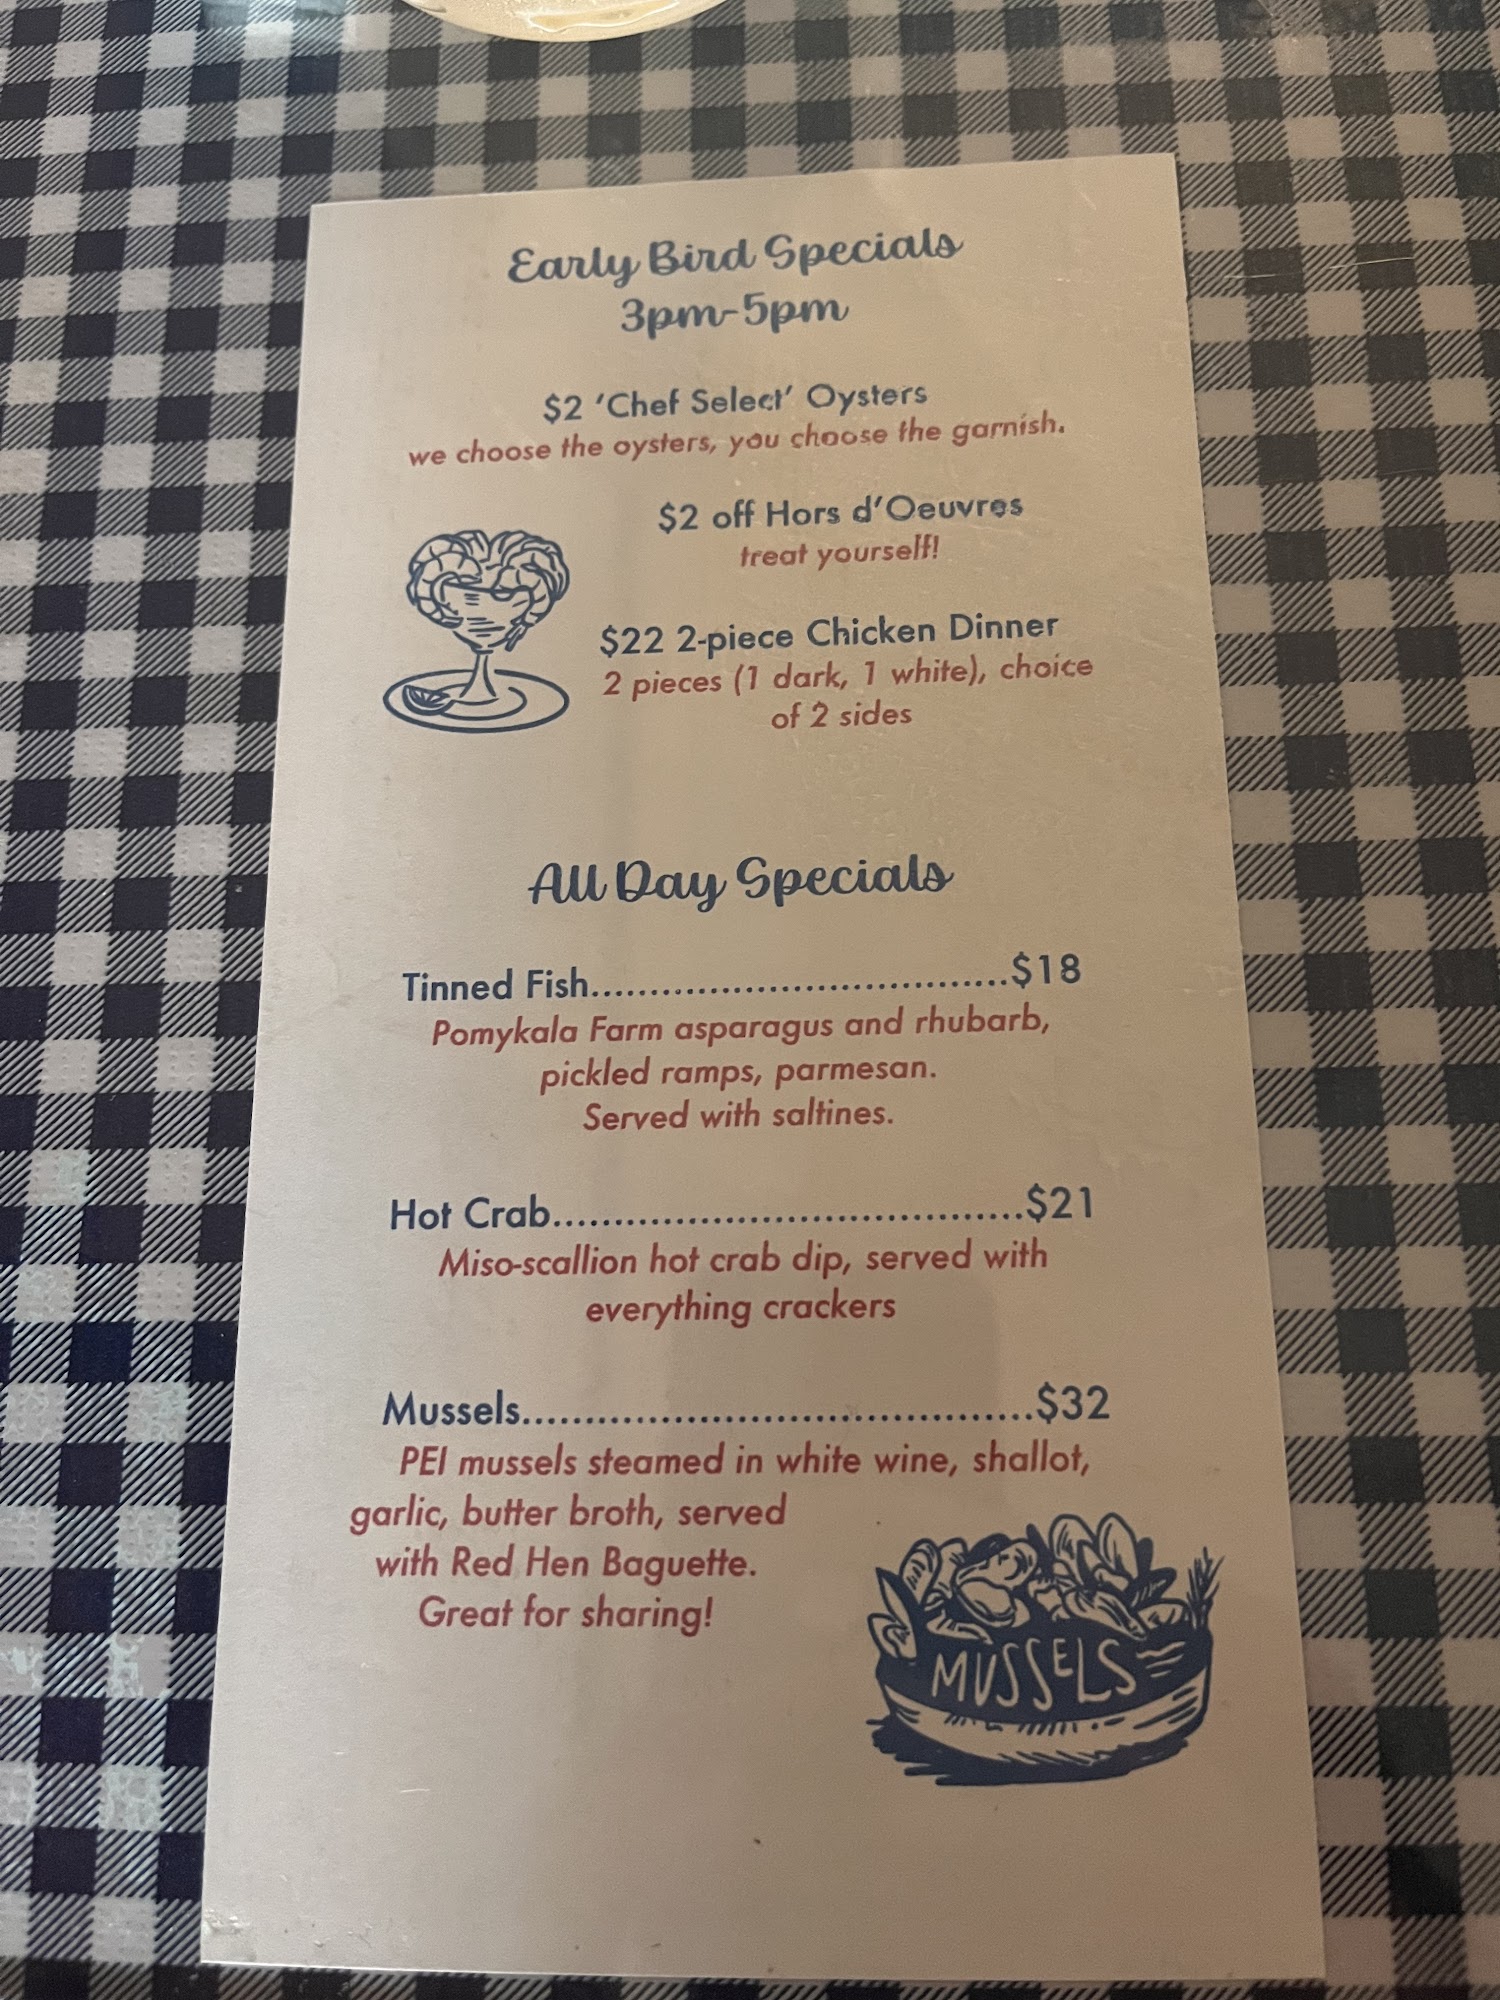 Early Bird Specials
3pm-5pm
$2 ‘Chef Select’ Oysters
we choose the oysters, you choose the garnish.
$2 off Hors d’Oeuvres
treat yourself!
$22 2-piece Chicken Dinner
2 pieces (1 dark, 1 white), choice
of 2 sides
All Day Specials
Tinned Fish..................................$18
Pomykala Farm asparagus and rhubarb,
pickled ramps, parmesan.
Served with saltines.
Hot Crab......................................$21
Miso-scallion hot crab dip, served with
everything crackers
Mussels.........................................$32
PEI mussels steamed in white wine, shallot,
garlic, butter broth, served
with Red Hen Baguette.
Great for sharing!
MUSSELS